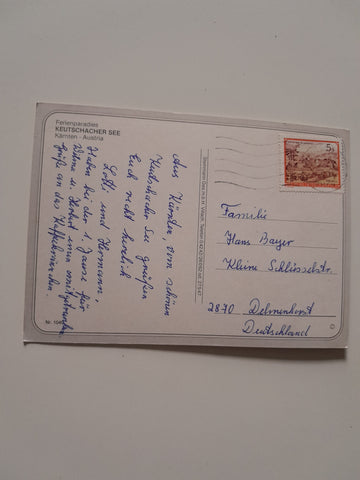 Ferienparadies
KEUTSCHACHER SEE
Kärnten - Austria
Aus Kärnten, vom schönen
Keutschacher See grüßen
Euch recht herzlich
Lotti und Hermann.
Haben bei der 1. Jause für
u. Herbert eins mitgetrunken
Grüße an das Kaffeekränzchen.
Nr. 104
5 S
Familie
Hans Bayer
Kleine Schlüsselstr.
2870 Delmenhorst
Deutschland